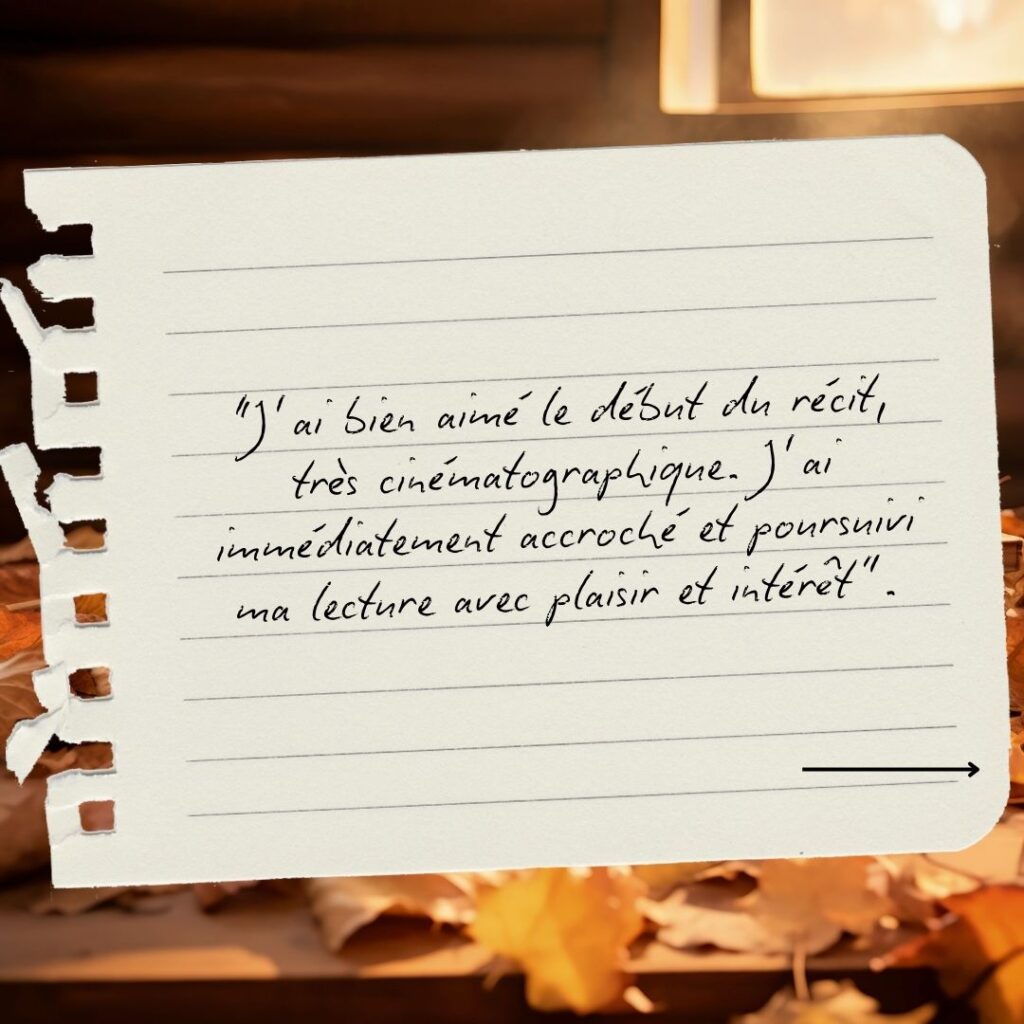 "J'ai bien aimé le début du récit,
très cinématographique. J'ai
immédiatement accroché et poursuivi
ma lecture avec plaisir et intérêt".